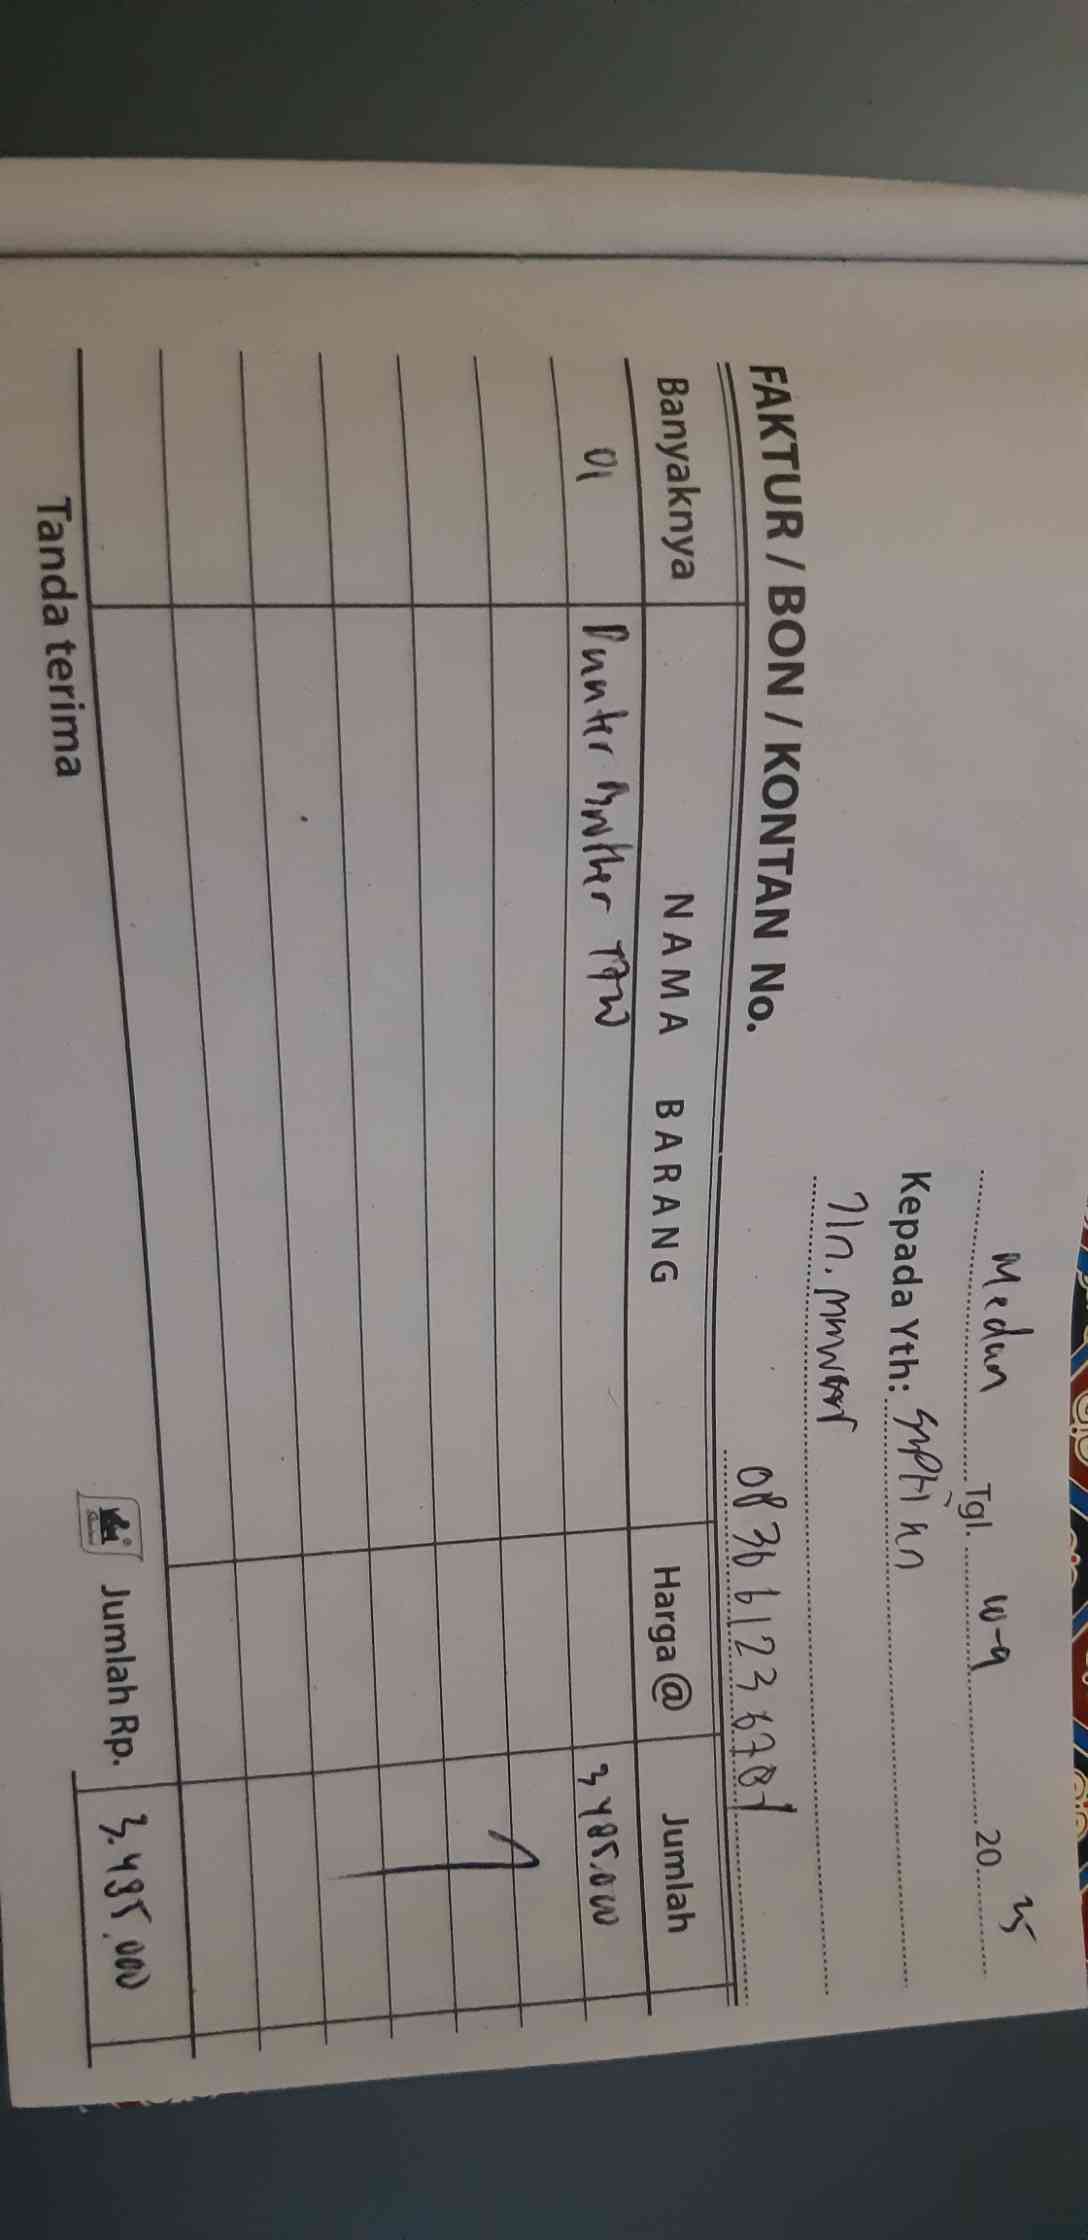 Medan Tgl. 20 25
Kepada Yth: Suptian
Jln.
FAKTUR / BON / KONTAN No.
Banyaknya NAMA BARANG Harga @ Jumlah
01 Printer Brother T7W 3485.000
Tanda terima Jumlah Rp. 3.485.000